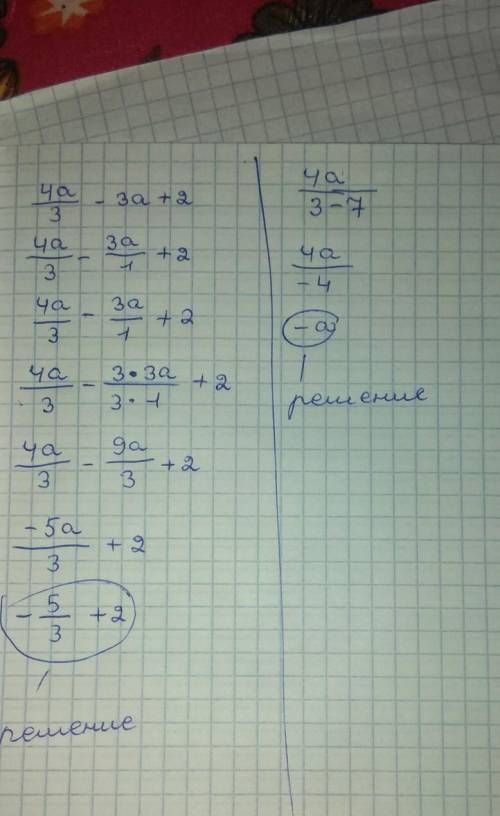 4a/3 - 3a + 2
4a/3 - 3a/1 + 2
4a/3 - 3a/1 + 2
4a/3 - 3·3a/3·1 + 2
4a/3 - 9a/3 + 2
-5a/3 + 2
- 5/3 + 2
решение
4a/3-7
4a/-4
-a
решение